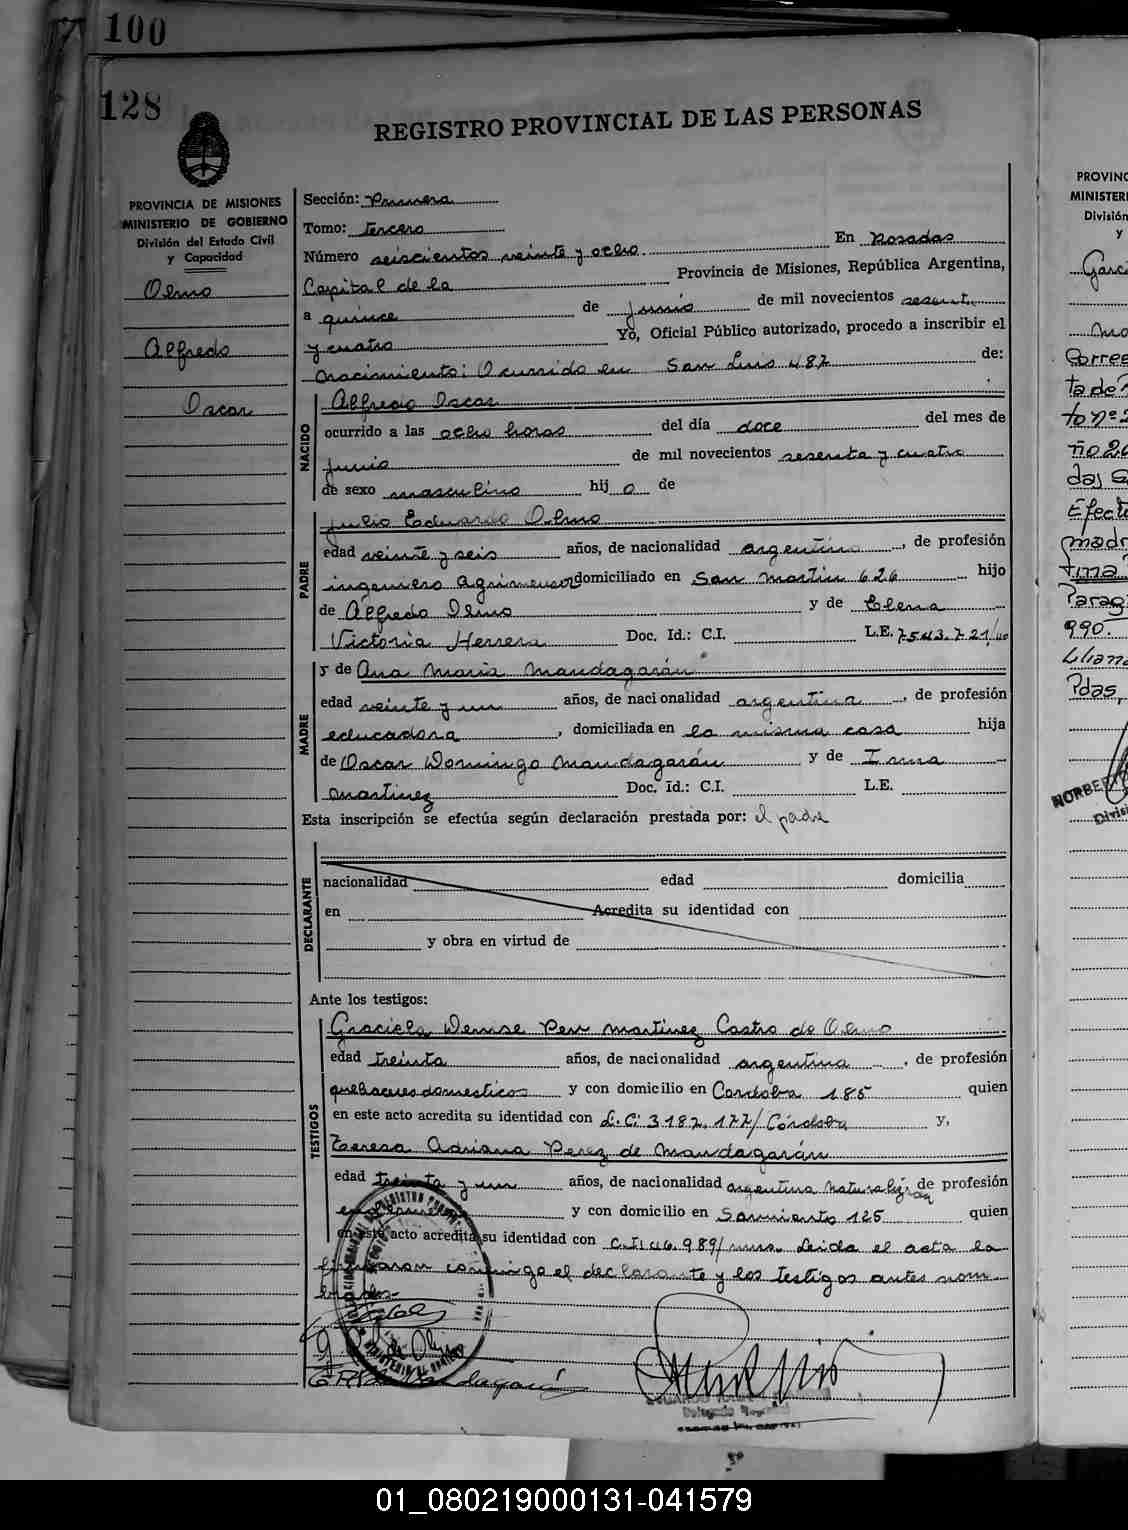 100
128
REGISTRO PROVINCIAL DE LAS PERSONAS
PROVINCIA DE MISIONES
MINISTERIO DE GOBIERNO
División del Estado Civil
y Capacidad
Olmo
Alfredo
Oscar
Sección: Primera
Tomo: tercero
Número seiscientos veinte y ocho. En Posadas
Capital de la Provincia de Misiones, República Argentina,
a quince de junio de mil novecientos sesent
y cuatro Yo, Oficial Público autorizado, procedo a inscribir el
nacimiento: Ocurrido en San Luis 487 de:
NACIDO
Alfredo Oscar
ocurrido a las ocho horas del día doce del mes de
junio de mil novecientos sesenta y cuatro
de sexo masculino hij o de
PADRE
Julio Eduardo Olmo
edad veinte y seis años, de nacionalidad argentino, de profesión
ingeniero agrimensor domiciliado en San Martin 626 hijo
de Alfredo Olmo y de Elena
Victoria Herrera Doc. Id.: C.I. L.E. 7543.721/
MADRE
y de Ana Maria Mandagarán
edad veinte y un años, de nacionalidad argentina, de profesión
educadora, domiciliada en la misma casa hija
de Oscar Domingo Mandagarán y de Irma
Martinez Doc. Id.: C.I. L.E.
Esta inscripción se efectúa según declaración prestada por: el padre
DECLARANTE
nacionalidad edad domicilia
en Acredita su identidad con
y obra en virtud de
Ante los testigos:
TESTIGOS
Graciela Denise Martinez Castro de Olmo
edad treinta años, de nacionalidad argentina, de profesión
quehaceres domesticos y con domicilio en Cordoba 185 quien
en este acto acredita su identidad con L.C: 3187.177/Córdoba y,
Teresa Adriana Perez de Mandagarán
edad treinta y un años, de nacionalidad argentina naturalizada de profesión
y con domicilio en Sarmiento 125 quien
en este acto acredita su identidad con C.I: 46.989/mnes. Leida el acta la
firmaron conmigo el declarante y los testigos antes nom-
brados.-
Delegado
PROVINC
MINISTER
División
y
Garci
Corree
ta de
to nº 2
ño 20
das
Efectu
madr
tima
Parag
990.
Liliana
Pdas,
NORBERT
Divisi
01_080219000131-041579